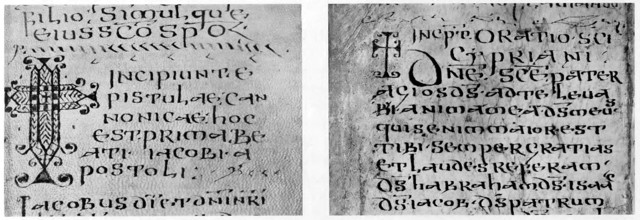 filio, Simulque
eius sc̄o sp̄o
INCIPIUNT E
pistulae can
nonicae, hoc
est prima be
ati iacobi a
postoli.
Iacobus
INCIPT ORATIO SCI
CYPRIANI
DNE, SCE, PATER
AGIOS D̄S. AD TE LEUA
BI ANIMAM EA D̄S MEUS
QUIS ENIM MAIOR EST
TIBI SEMPER GRATIAS
ET LAUDES REFERAM
D̄S HABRAHAM D̄S ISAAC
D̄S IACOB D̄S PATRUM